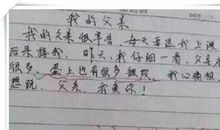 我的父亲
我的父亲很辛苦，每天要送我上课
后来接我，昨天，我仔细一看，父亲老
很多，登上也有很多皱纹，我心痛极
想说，父亲，我爱你！